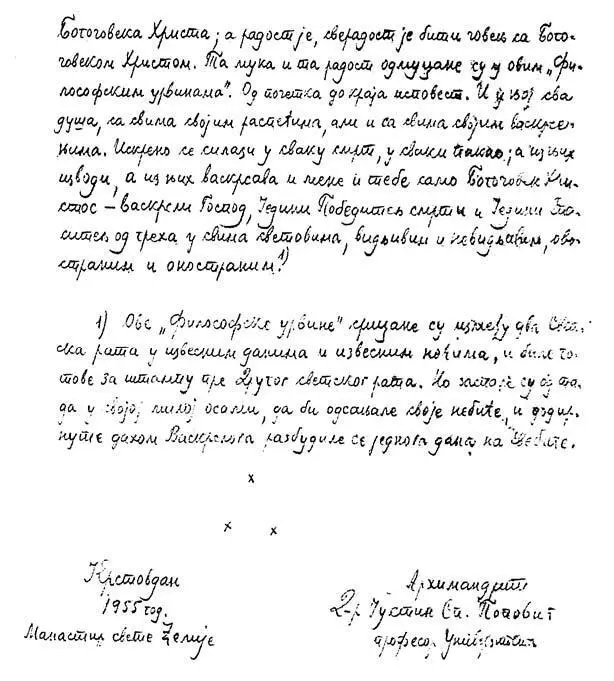 Богочовека Христа; а радост је, сверадост је бити човек са Бого-
човеком Христом. Та мука и та радост одмуцане су у овим „Фи-
лософским урвинама“. Од почетка до краја исповест. И у њој сва
душа, са свима својим распећима, али и са свима својим васкрсе-
њима. Искрено се силази у сваку смрт, у сваки пакао; а из њих
изводи, а из њих васкрсава и мене и тебе само Богочовек Хри-
стос — Васкрсли Господ, Једини Победитељ смрти и Једини Спа-
ситељ од греха у свима световима, видљивим и невидљивим, ово-
страним и оностраним.¹⁾
1) Ове „Философске урвине“ срицане су између два Свет-
ска рата у извесним данима и извесним ноћима, и биле го-
тове за штампу пре Другог светског рата. Но заспале су од та-
да у својој милој осами, да би одсањале своје небиће, и додир-
нуте дахом Васкрслога разбудиле се једнога дана на свебиће.
x
x x
Крстовдан
1955 год.
Манастир свете Ћелије
Архимандрит
Д-р Јустин Сп. Поповић
професор Универзитета